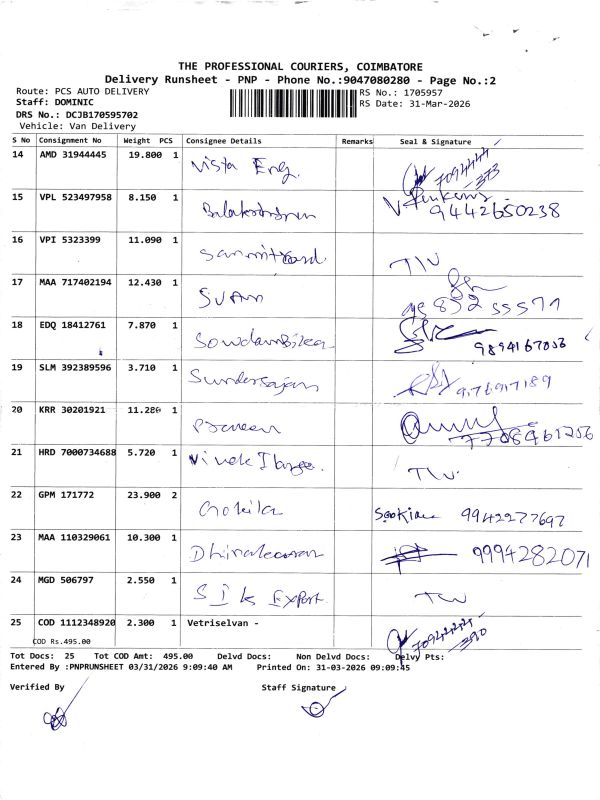 THE PROFESSIONAL COURIERS, COIMBATORE
Delivery Runsheet - PNP - Phone No.:9047080280 - Page No.:2
Route: PCS AUTO DELIVERY
RS No.: 1705957
Staff: DOMINIC
RS Date: 31-Mar-2026
DRS No.: DCJB170595702
Vehicle: Van Delivery
S No Consignment No Weight PCS Consignee Details Remarks Seal & Signature
14 AMD 31944445 19.800 1 Vista Eng.
15 VPL 523497958 8.150 1 9442650238
16 VPI 5323399 11.090 1
17 MAA 717402194 12.430 1
18 EDQ 18412761 7.870 1
19 SLM 392389596 3.710 1 Sunderrajan
20 KRR 30201921 11.280 1 Praveen
21 HRD 7000734688 5.720 1
22 GPM 171772 23.900 2 Gokila 9942277697
23 MAA 110329061 10.300 1 9994282071
24 MGD 506797 2.550 1 Export
25 COD 1112348920 2.300 1 Vetriselvan -
COD Rs.495.00
Tot Docs: 25 Tot COD Amt: 495.00 Delvd Docs: Non Delvd Docs: Delvy Pts:
Entered By :PNPRUNSHEET 03/31/2026 9:09:40 AM Printed On: 31-03-2026 09:09:45
Verified By Staff Signature